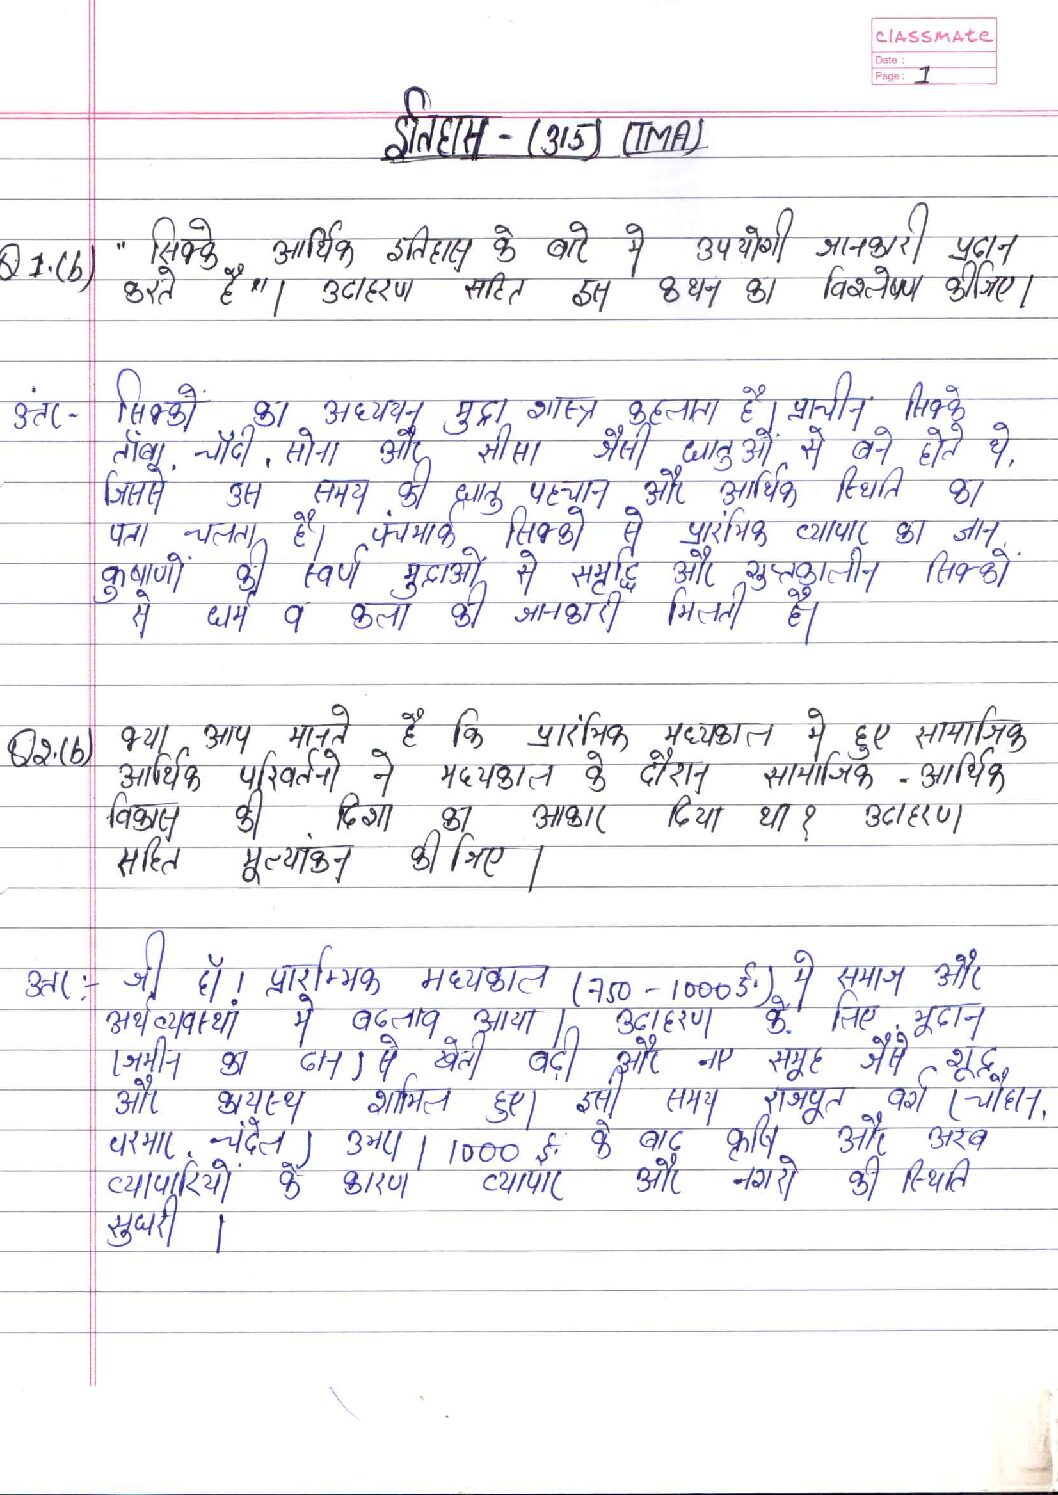 classmate
Date :
Page : 1
इतिहास - (315) (TMA)
Q1.(b) "सिक्के आर्थिक इतिहास के बारे मे उपयोगी जानकारी प्रदान
करते है"। उदाहरण सहित इस कथन का विश्लेषण कीजिए।
उतर - सिक्कों का अध्ययन मुद्रा शास्त्र कहलाता है। प्राचीन सिक्के
ताँबा, चाँदी, सोना और सीसा जैसी धातुओं से बने होते थे,
जिससे उस समय की धातु पहचान और आर्थिक स्थिति का
पता चलता है। पंचमार्क सिक्कों से प्रारंभिक व्यापार का ज्ञान,
कुषाणों की स्वर्ण मुद्राओं से समृद्धि और गुप्तकालीन सिक्कों
से धर्म व कला की जानकारी मिलती है।
Q2.(b) क्या आप मानते है कि प्रारंभिक मध्यकाल मे हुए सामाजिक
आर्थिक परिवर्तनो ने मध्यकाल के दौरान सामाजिक - आर्थिक
विकास की दिशा का आकार दिया था? उदाहरण
सहित मूल्यांकन कीजिए।
उतर :- जी हाँ। प्रारम्भिक मध्यकाल (750 - 1000 ई.) मे समाज और
अर्थव्यवस्था में बदलाव आया। उदाहरण के लिए, भूदान
(जमीन का दान) से खेती बढ़ी और नए समूह जैसे शूद्र
और कायस्थ शामिल हुए। इसी समय राजपूत वर्ग (चौहान,
परमार, चंदेल) उभरा। 1000 ई. के बाद कृषि और अरब
व्यापारियों के कारण व्यापार और नगरो की स्थिति
सुधरी।